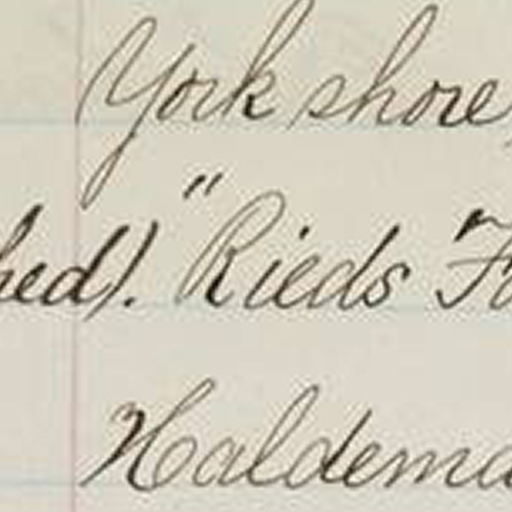 York shore,
hed). "Rieds Fo
Haldema